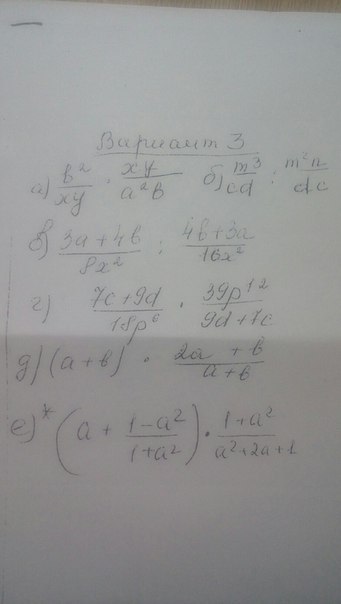 Вариант 3
а) b²/xy · xy/a²b б) m³/cd : m²n/dc
в) 3a+4b/8x² : 4b+3a/16x²
г) 7c+9d/18p⁶ · 39p¹²/9d+7c
д) (a+b) · 2a+b/a+b
е)* (a + 1-a²/1+a²) · 1+a²/a²+2a+1